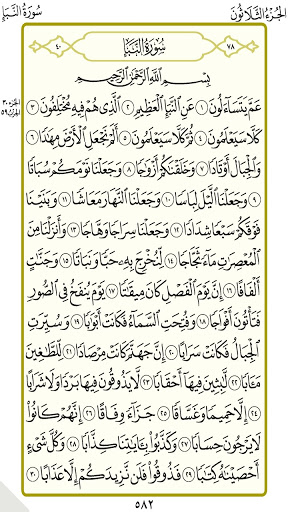 الجُزْءُ الثَّلَاثُونَ سُورَةُ النَّبَإِ
٧٨ سُورَةُ النَّبَإِ ٤٠
بِسْمِ اللَّهِ الرَّحْمَٰنِ الرَّحِيمِ
عَمَّ يَتَسَاءَلُونَ ١ عَنِ النَّبَإِ الْعَظِيمِ ٢ الَّذِي هُمْ فِيهِ مُخْتَلِفُونَ ٣
كَلَّا سَيَعْلَمُونَ ٤ ثُمَّ كَلَّا سَيَعْلَمُونَ ٥ أَلَمْ نَجْعَلِ الْأَرْضَ مِهَادًا ٦
وَالْجِبَالَ أَوْتَادًا ٧ وَخَلَقْنَاكُمْ أَزْوَاجًا ٨ وَجَعَلْنَا نَوْمَكُمْ سُبَاتًا
٩ وَجَعَلْنَا اللَّيْلَ لِبَاسًا ١٠ وَجَعَلْنَا النَّهَارَ مَعَاشًا ١١ وَبَنَيْنَا
فَوْقَكُمْ سَبْعًا شِدَادًا ١٢ وَجَعَلْنَا سِرَاجًا وَهَّاجًا ١٣ وَأَنْزَلْنَا مِنَ
الْمُعْصِرَاتِ مَاءً ثَجَّاجًا ١٤ لِنُخْرِجَ بِهِ حَبًّا وَنَبَاتًا ١٥ وَجَنَّاتٍ
أَلْفَافًا ١٦ إِنَّ يَوْمَ الْفَصْلِ كَانَ مِيقَاتًا ١٧ يَوْمَ يُنْفَخُ فِي الصُّورِ
فَتَأْتُونَ أَفْوَاجًا ١٨ وَفُتِحَتِ السَّمَاءُ فَكَانَتْ أَبْوَابًا ١٩ وَسُيِّرَتِ
الْجِبَالُ فَكَانَتْ سَرَابًا ٢٠ إِنَّ جَهَنَّمَ كَانَتْ مِرْصَادًا ٢١ لِلطَّاغِينَ
مَآبًا ٢٢ لَابِثِينَ فِيهَا أَحْقَابًا ٢٣ لَا يَذُوقُونَ فِيهَا بَرْدًا وَلَا شَرَابًا
٢٤ إِلَّا حَمِيمًا وَغَسَّاقًا ٢٥ جَزَاءً وِفَاقًا ٢٦ إِنَّهُمْ كَانُوا
لَا يَرْجُونَ حِسَابًا ٢٧ وَكَذَّبُوا بِآيَاتِنَا كِذَّابًا ٢٨ وَكُلَّ شَيْءٍ
أَحْصَيْنَاهُ كِتَابًا ٢٩ فَذُوقُوا فَلَنْ نَزِيدَكُمْ إِلَّا عَذَابًا ٣٠
٥٨٢